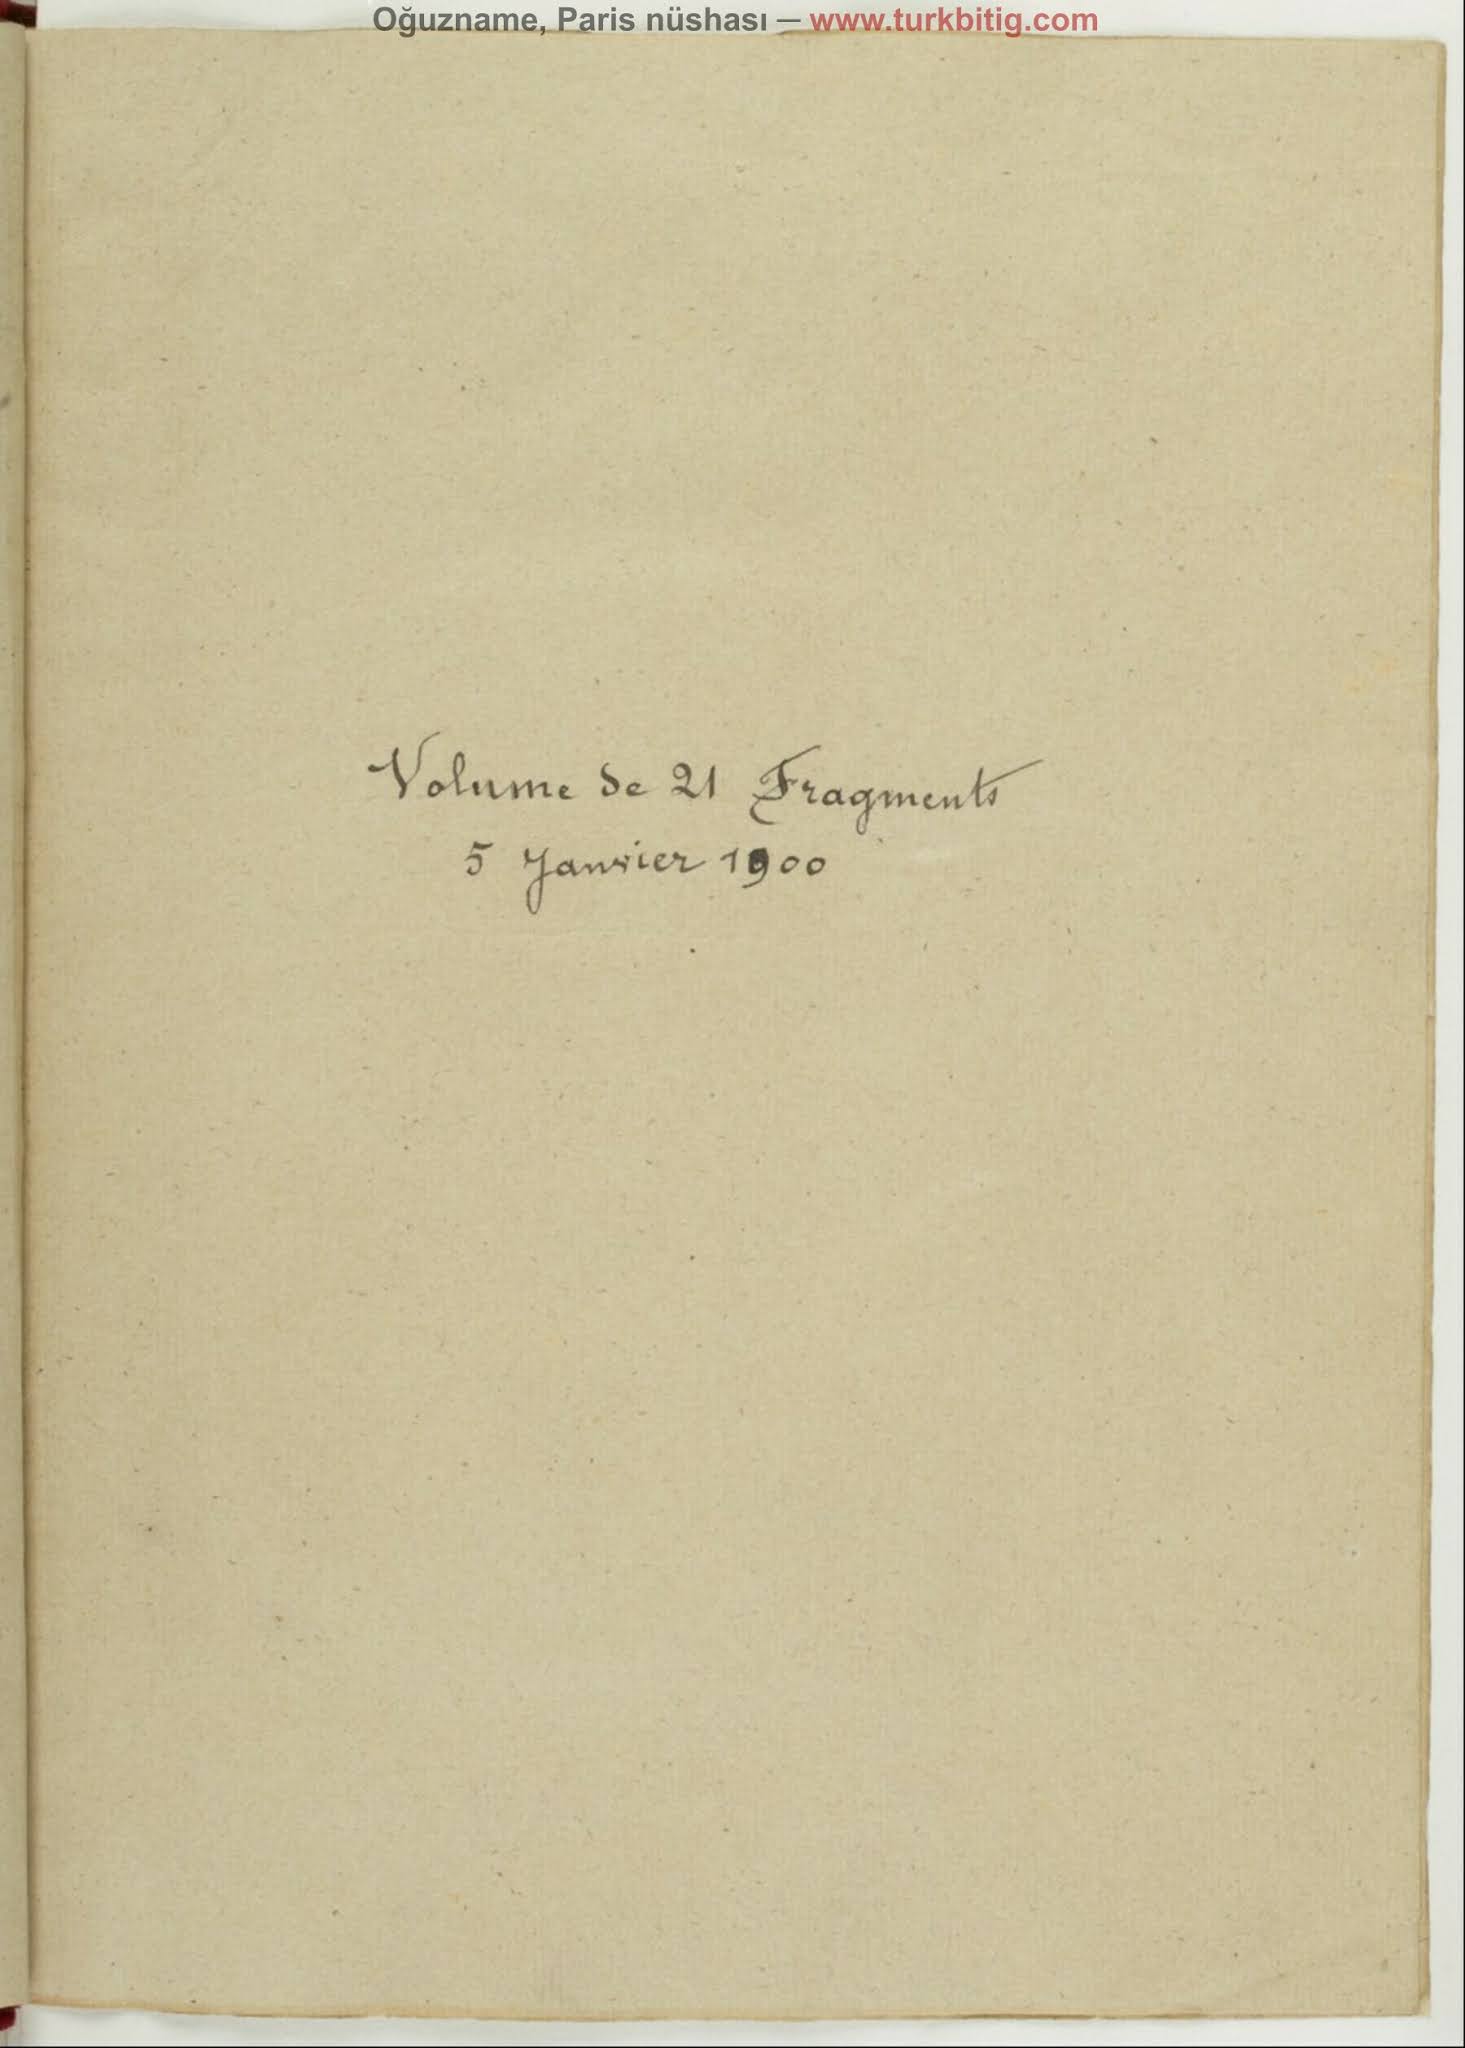 Oğuzname, Paris nüshası — www.turkbitig.com
Volume de 21 Fragments
5 Janvier 1900